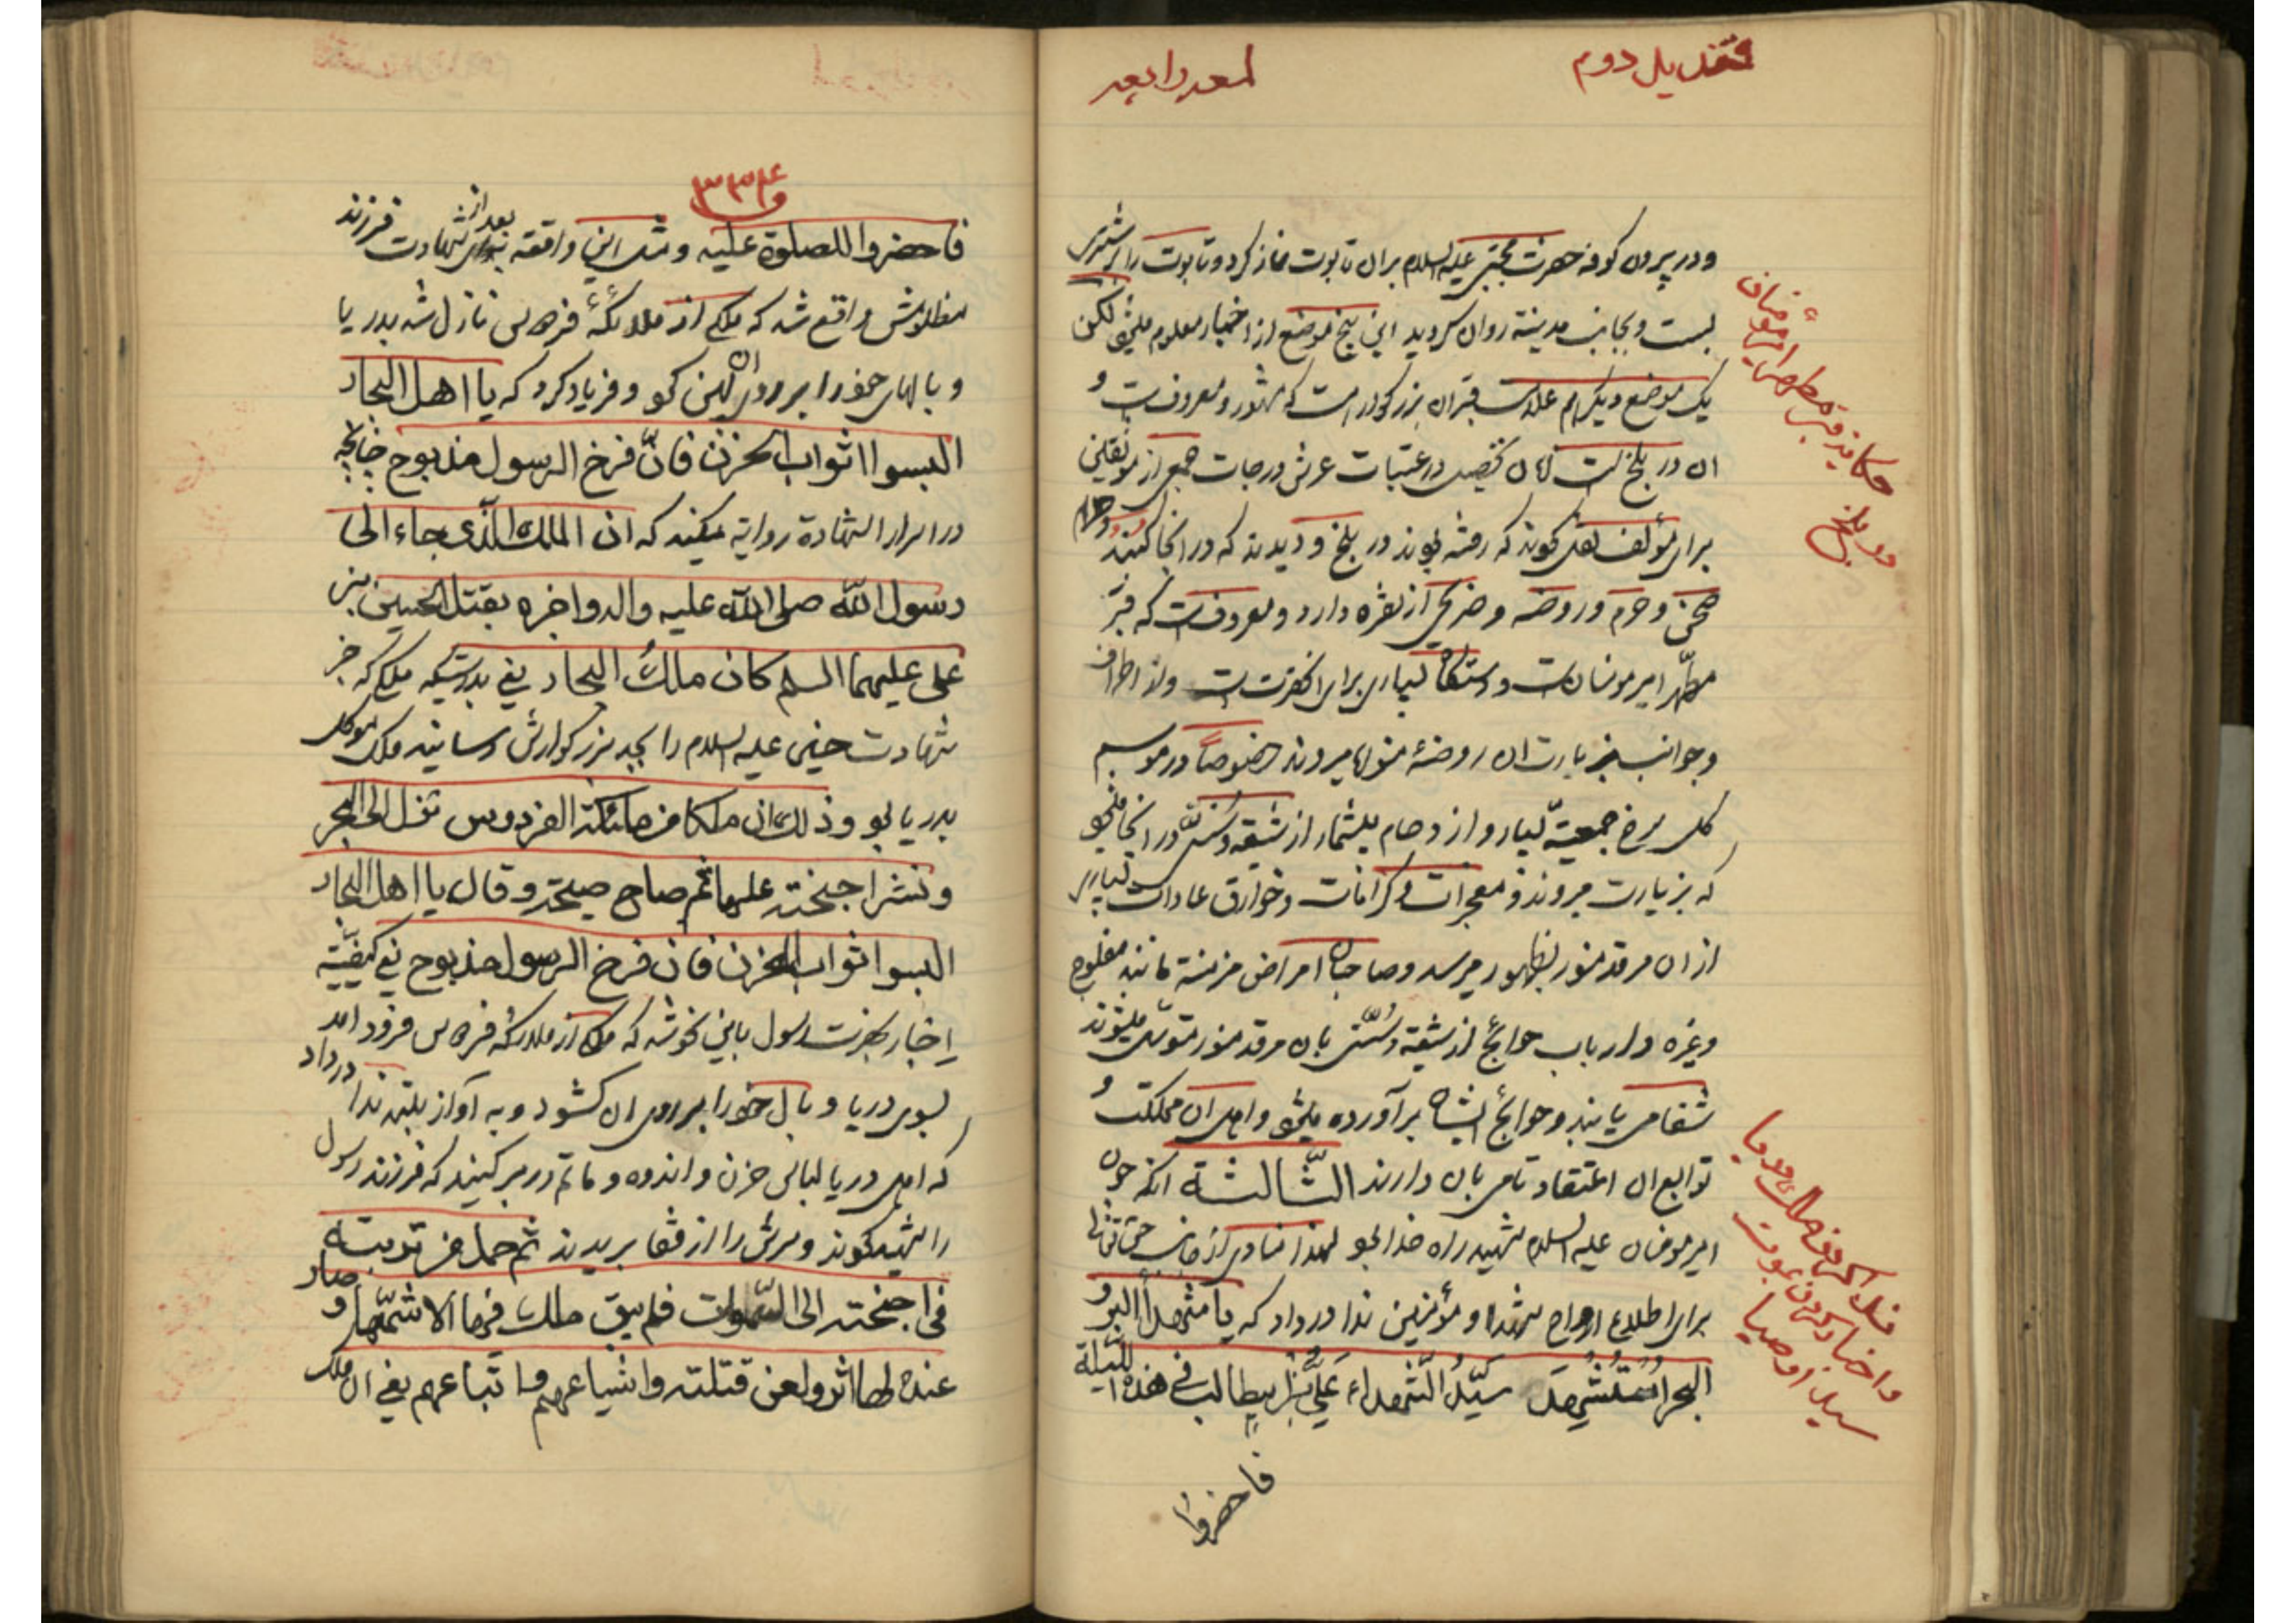 قندیل دوم
لمعه رابعه
و در بیرون کوفه حضرت مجتبی علیه السلام بر آن تابوت نماز کرد و تابوت را بر شتری
بست و بجانب مدینة روان کردید این پنج موضع از اخبار معلوم میشود لکن
یک موضع دیکر هم علامت قبر آن بزرکوار است که مشهور و معروفست و
ان در بلخ است در عتبات عرش درجات جمعی از موثقین
برای مؤلف نقل کردند که رفته بودند در بلخ و دیدند که در انجا
صحن و حرم و روضه و ضریحی از نقره دارد و معروفست که قبر
مطهر امیر مومنان است و دستکاه بسیاری برای انحضرت است و از اطراف
و جوانب بزیارت ان روضهٔ منوره میروند خصوصاً در موسم
کل سرخ جمعیة بسیار و ازدحام بیشمار از شیعه و سنی در انجا میشود
که بزیارت میروند و معجزات و کرامات و خوارق عادات بسیاری
از ان مرقد منور بظهور میرسد و صاحبان امراض مزمنة مانند مفلوج
و غیره و ارباب حوائج از شیعة و سنی بان مرقد منور متوسل میشوند
شفا می یابند و حوائج ایشان برآورده میشود و اهل ان مملکت و
توابع ان اعتقاد تامی بان دارند الثّالثة انکه چون
امیر مومنان علیه السلام شهید راه خدا بود لهذا منادی از جانب حق تعالی
برای اطلاع ارواح شهدا و مؤمنین ندا در داد که یا شهداء البر و
البحر اُستُشهِدَ سیّدُ الشّهداء عَلیُّ بنُ ابیطالب فی هذه اللیلة
فاحضروا
حکایة قبر مطهر امیر مؤمنان
در بلخ
ندا کردن ملک در دریا
و اخبار کردن بموت
سید اوصیا
۳۳۴
فاحضروا للصلوة علیه و مثل این واقعه بعد از شهادت فرزند
مظلومش واقع شد که ملکی از ملائکهٔ فردوس نازل شد بدریا
و بالهای خود را بر روی ان پهن کرد و فریاد کرد که یا اهل البحار
البسوا اثواب الحزن فانّ فرخ الرسول مذبوح چنانچه
در اسرار الشهادة روایة میکند که ان الملک الّذی جاء الی
رسول اللّه صلی اللّه علیه واله واخبره بقتل الحسین بن
علی علیهما السلم کان ملکُ البحار یعنی بدرستیکه ملکی که خبر
شهادت حسین علیه السلام را بجد بزرکوارش رسانید ملک موکل
بدریا بود وذلک ان ملکا من ملئکة الفردوس نزل الی البحر
ونشر اجنحته علیها ثم صاح صیحة وقال یا اهل البحار
البسوا اثواب الحزن فان فرخ الرسول مذبوح یعنی کیفیّة
اخبار بحضرت رسول باین نحو شد که ملکی از ملائکه فردوس فرود امد
بسوی دریا و بال خود را بر روی ان کشود و به آواز بلند ندا در داد
که اهل دریا لباس حزن و اندوه و ماتم در بر کنید که فرزند رسول
را شهید کردند و سرش را از قفا بریدند ثم حمل من تربته
فی اجنحته الی السّموات فلم یبق ملک فیها الا شمّها و صار
عنده لها اثر ولعن قتلته واشیاعهم واتباعهم یعنی ان ملک